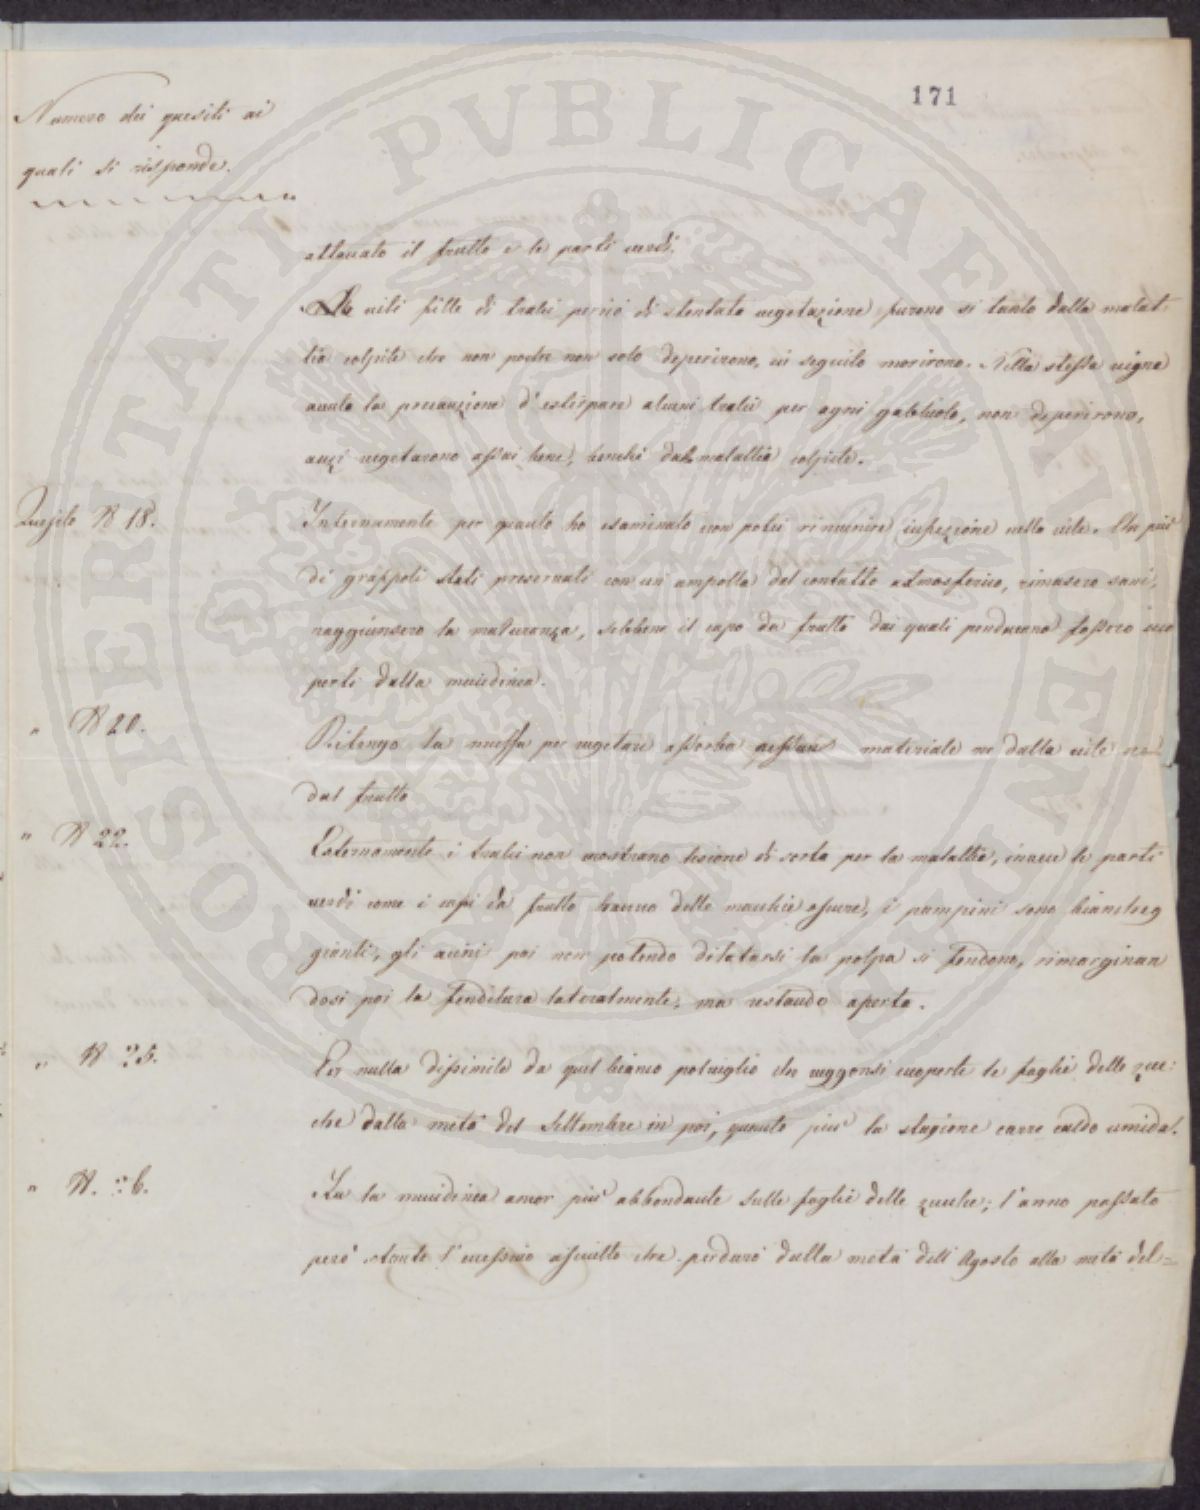 171
Numero dei quesiti ai
quali si risponde.
attaccato il frutto e le parti verdi.
Le viti fitte di tralci perciò di stentata vegetazione furono si tanto dalla malat
tia colpite che non poche non solo deperirono, in seguito morirono. Nella stessa vigna
avuta la precauzione d'estirpare alcuni tralci per ogni gabbiolo, non deperirono,
anzi vegetarono assai bene, benchè dalla malattia colpite.
Quesito N 18.
Internamente per quanto ho esaminato non potei rinvenire infezione nella vite. Un più
di grappoli stati preservati con un ampolla del contatto atmosferico, rimasero sani,
raggiunsero la maturanza, sebbene il capo da frutto dai quali pendevano fossero cuo
perti dalla mucedinea.
" N 20.
Ritengo la muffa per vegetare assorba nessun materiale ne dalla vite ne
dal frutto
" N 22.
Esternamente i tralci non mostrano lesione di sorta per la malattia, invece le parti
verdi come i capi da frutto hanno delle macchie oscure, i pampini sono biancheg
gianti, gli acini poi non potendo dilatarsi la polpa si fendono, rimarginan
dosi poi la fenditura lateralmente, ma restando aperta.
" N 25.
Per nulla dissimile da quel bianco polviglio che veggonsi cuoperte le foglie delle zuc:
che dalla metà del Settembre in poi, quanto più la stagione corre caldo umida.
" N. 26.
Fu la mucedinea ancor più abbondante sulle foglie delle zucche; l'anno passato
però stante l'eccessivo asciutto che perdurò dalla metà dell'Agosto alla metà del=